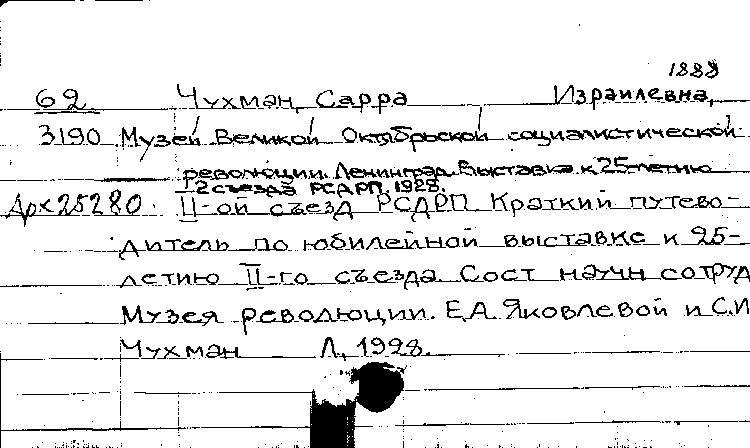 1888
62 Чухман, Сарра Израилевна,
3190 Музей Великой Октябрьской социалистической
революции. Ленинград. Выставка к 25-летию
2 съезда РСДРП. 1928.
Арх25280. II-ой съезд РСДРП. Краткий путево-
дитель по юбилейной выставке к 25-
летию II-го съезда. Сост научн сотруд
Музея революции. Е.А. Яковлевой и С.И
Чухман Л, 1928.